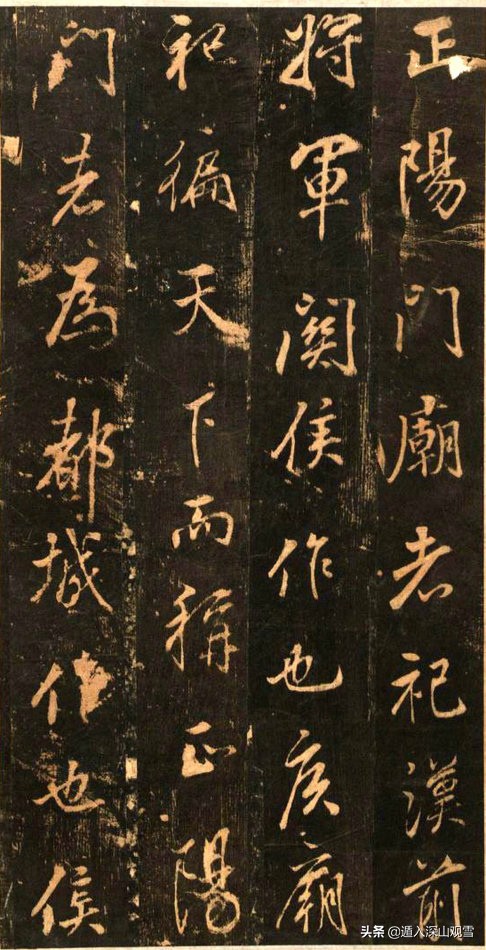 正陽門廟者祀漢前
將軍關侯作也侯廟
祀徧天下而稱正陽
門者為都城作也侯
头条 @遁入深山观雪